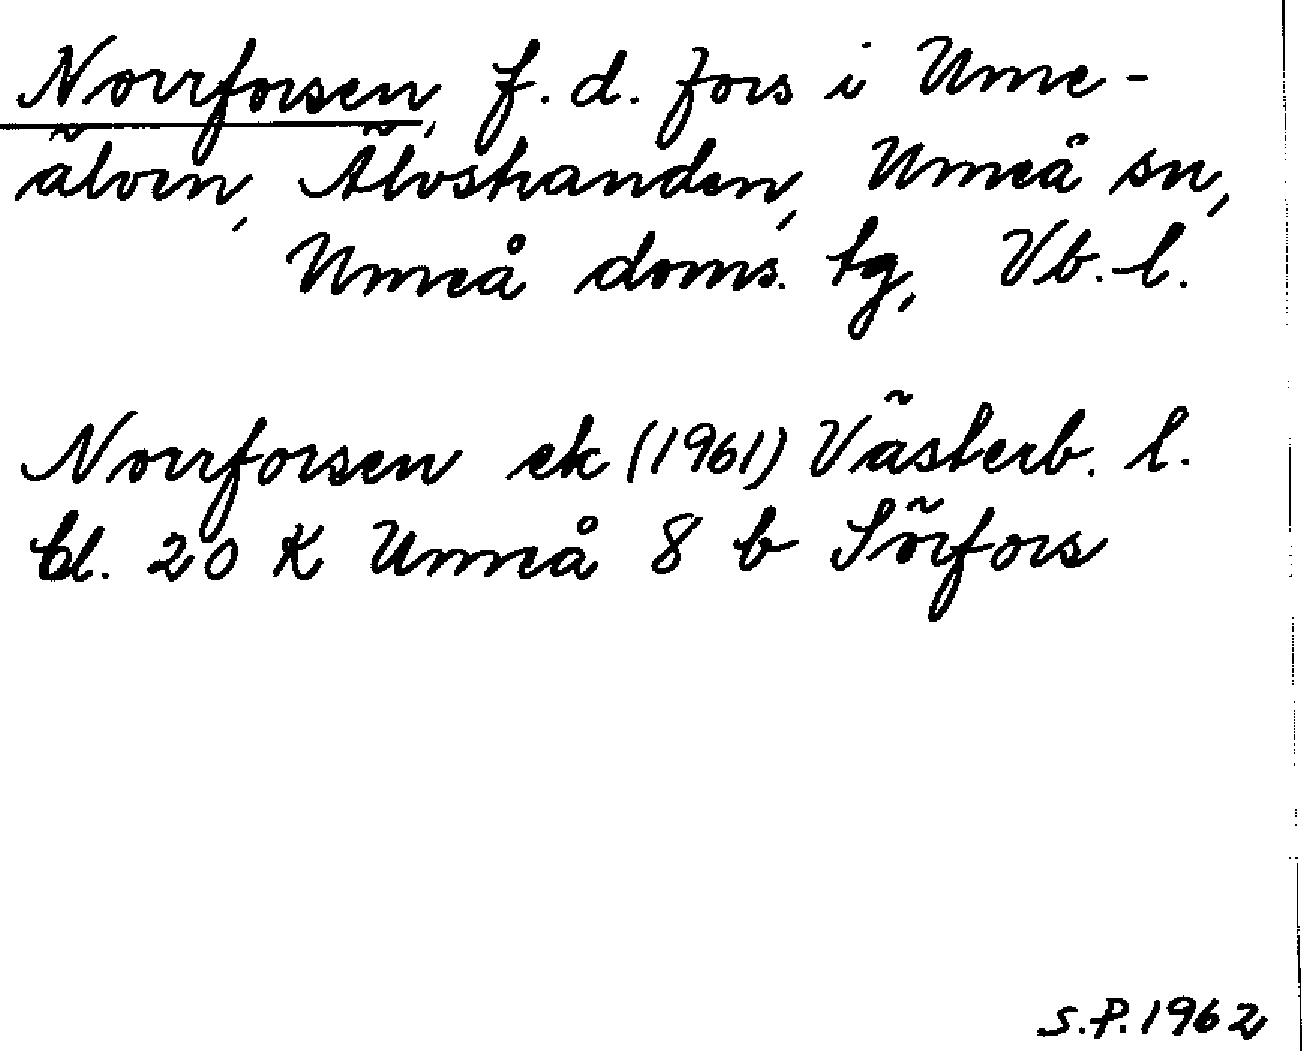 Norrforsen, f.d. fors i Ume-
älven, Älvslanden, Umeå sn,
Umeå doms. tg, Vb.-l.
Norrforsen ek (1961) Västerb. l.
bl. 20 K Umeå 8 b Sörfors
S.P. 1962